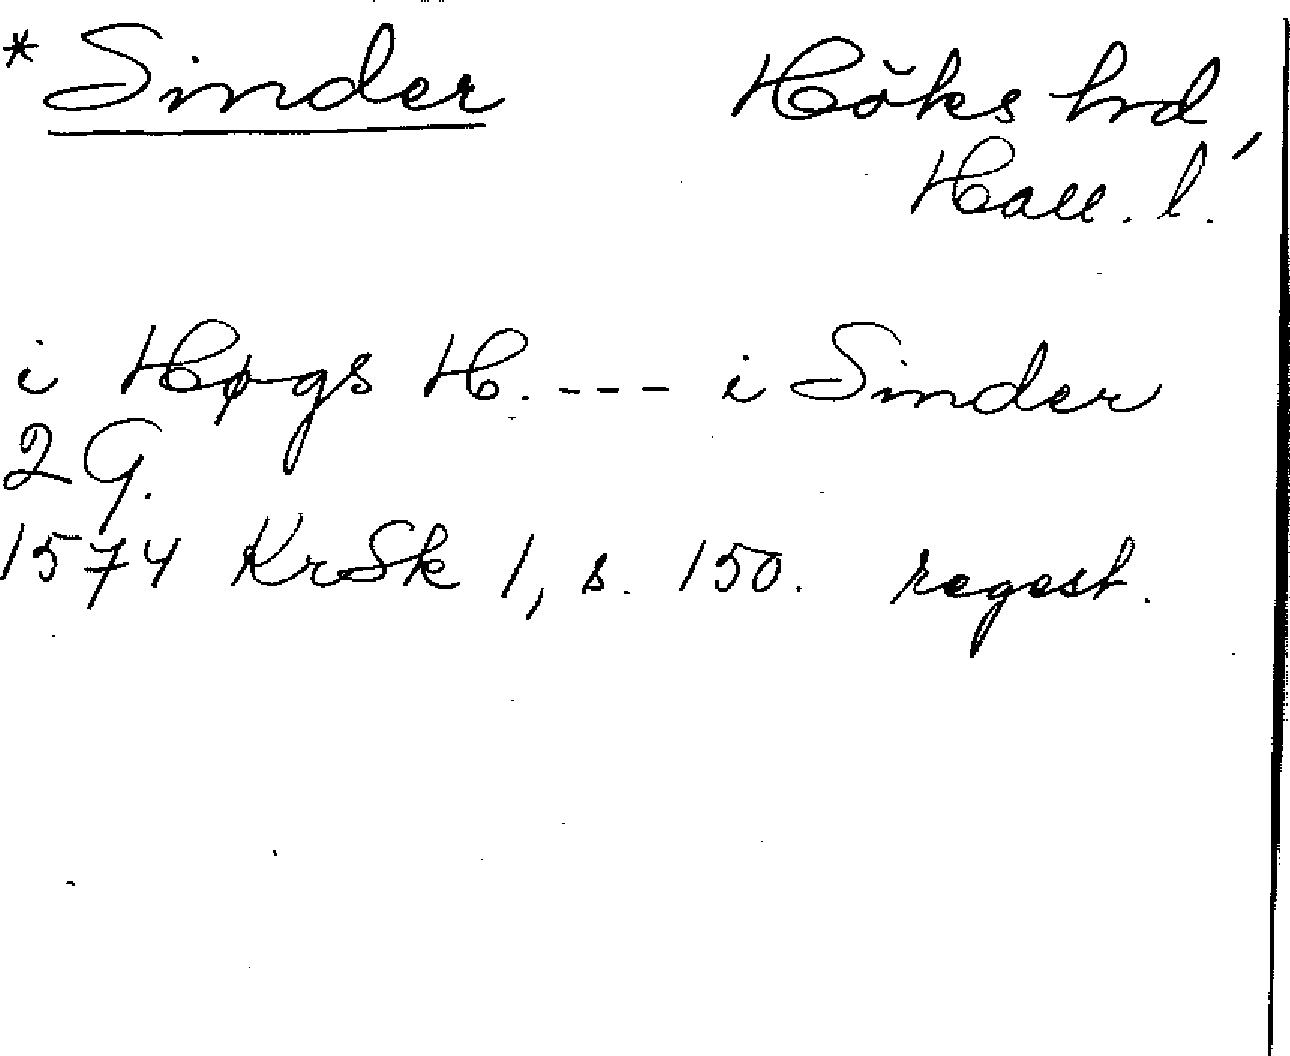 *Sinder Höks hd,
Hall. l.
i Høgs H. --- i Sinder
2 G.
1574 KrSk 1, s. 150. regest.